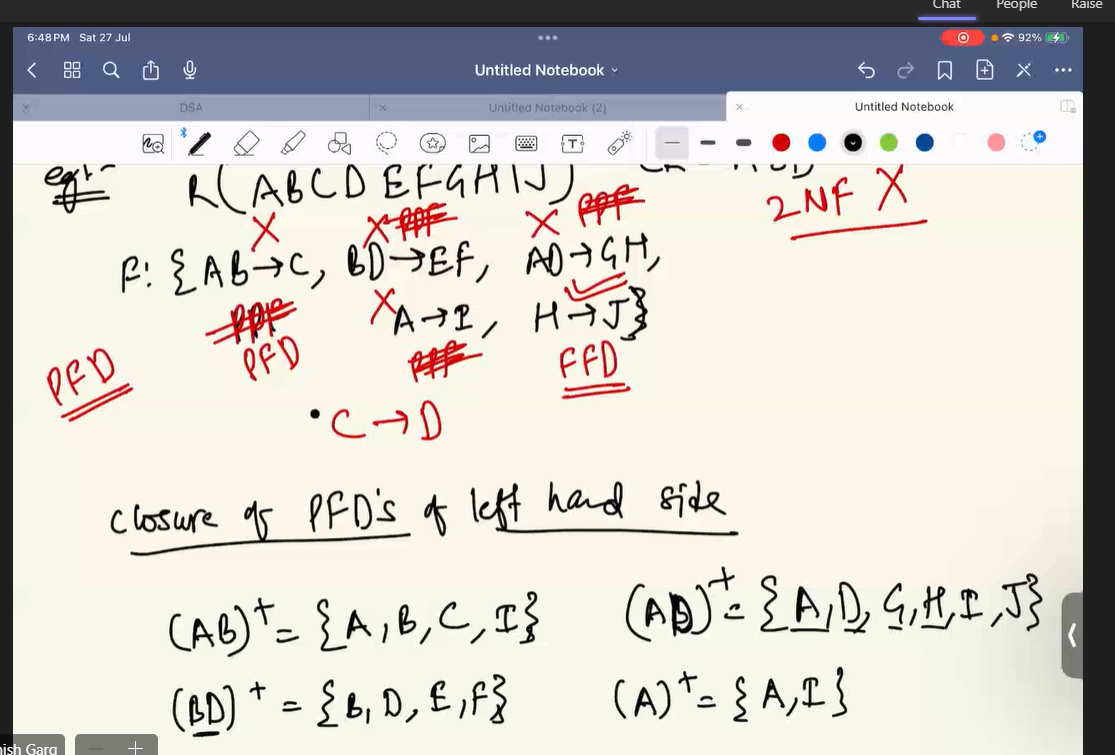 Chat People Raise
6:48 PM Sat 27 Jul
92%
Untitled Notebook
DSA
Untitled Notebook (2)
Untitled Notebook
T
eg:-
R(ABCDEFGHIJ)
2NF X
X X PPF X PPF
F: {AB→C, BD→EF, AD→GH,
PPF X A→I, H→J}
PFD PFD PPF FFD
C→D
closure of PFD's of left hand side
(AB)+ = {A, B, C, I}
(AD)+ = {A, D, G, H, I, J}
(BD)+ = {B, D, E, F}
(A)+ = {A, I}
ish Garg